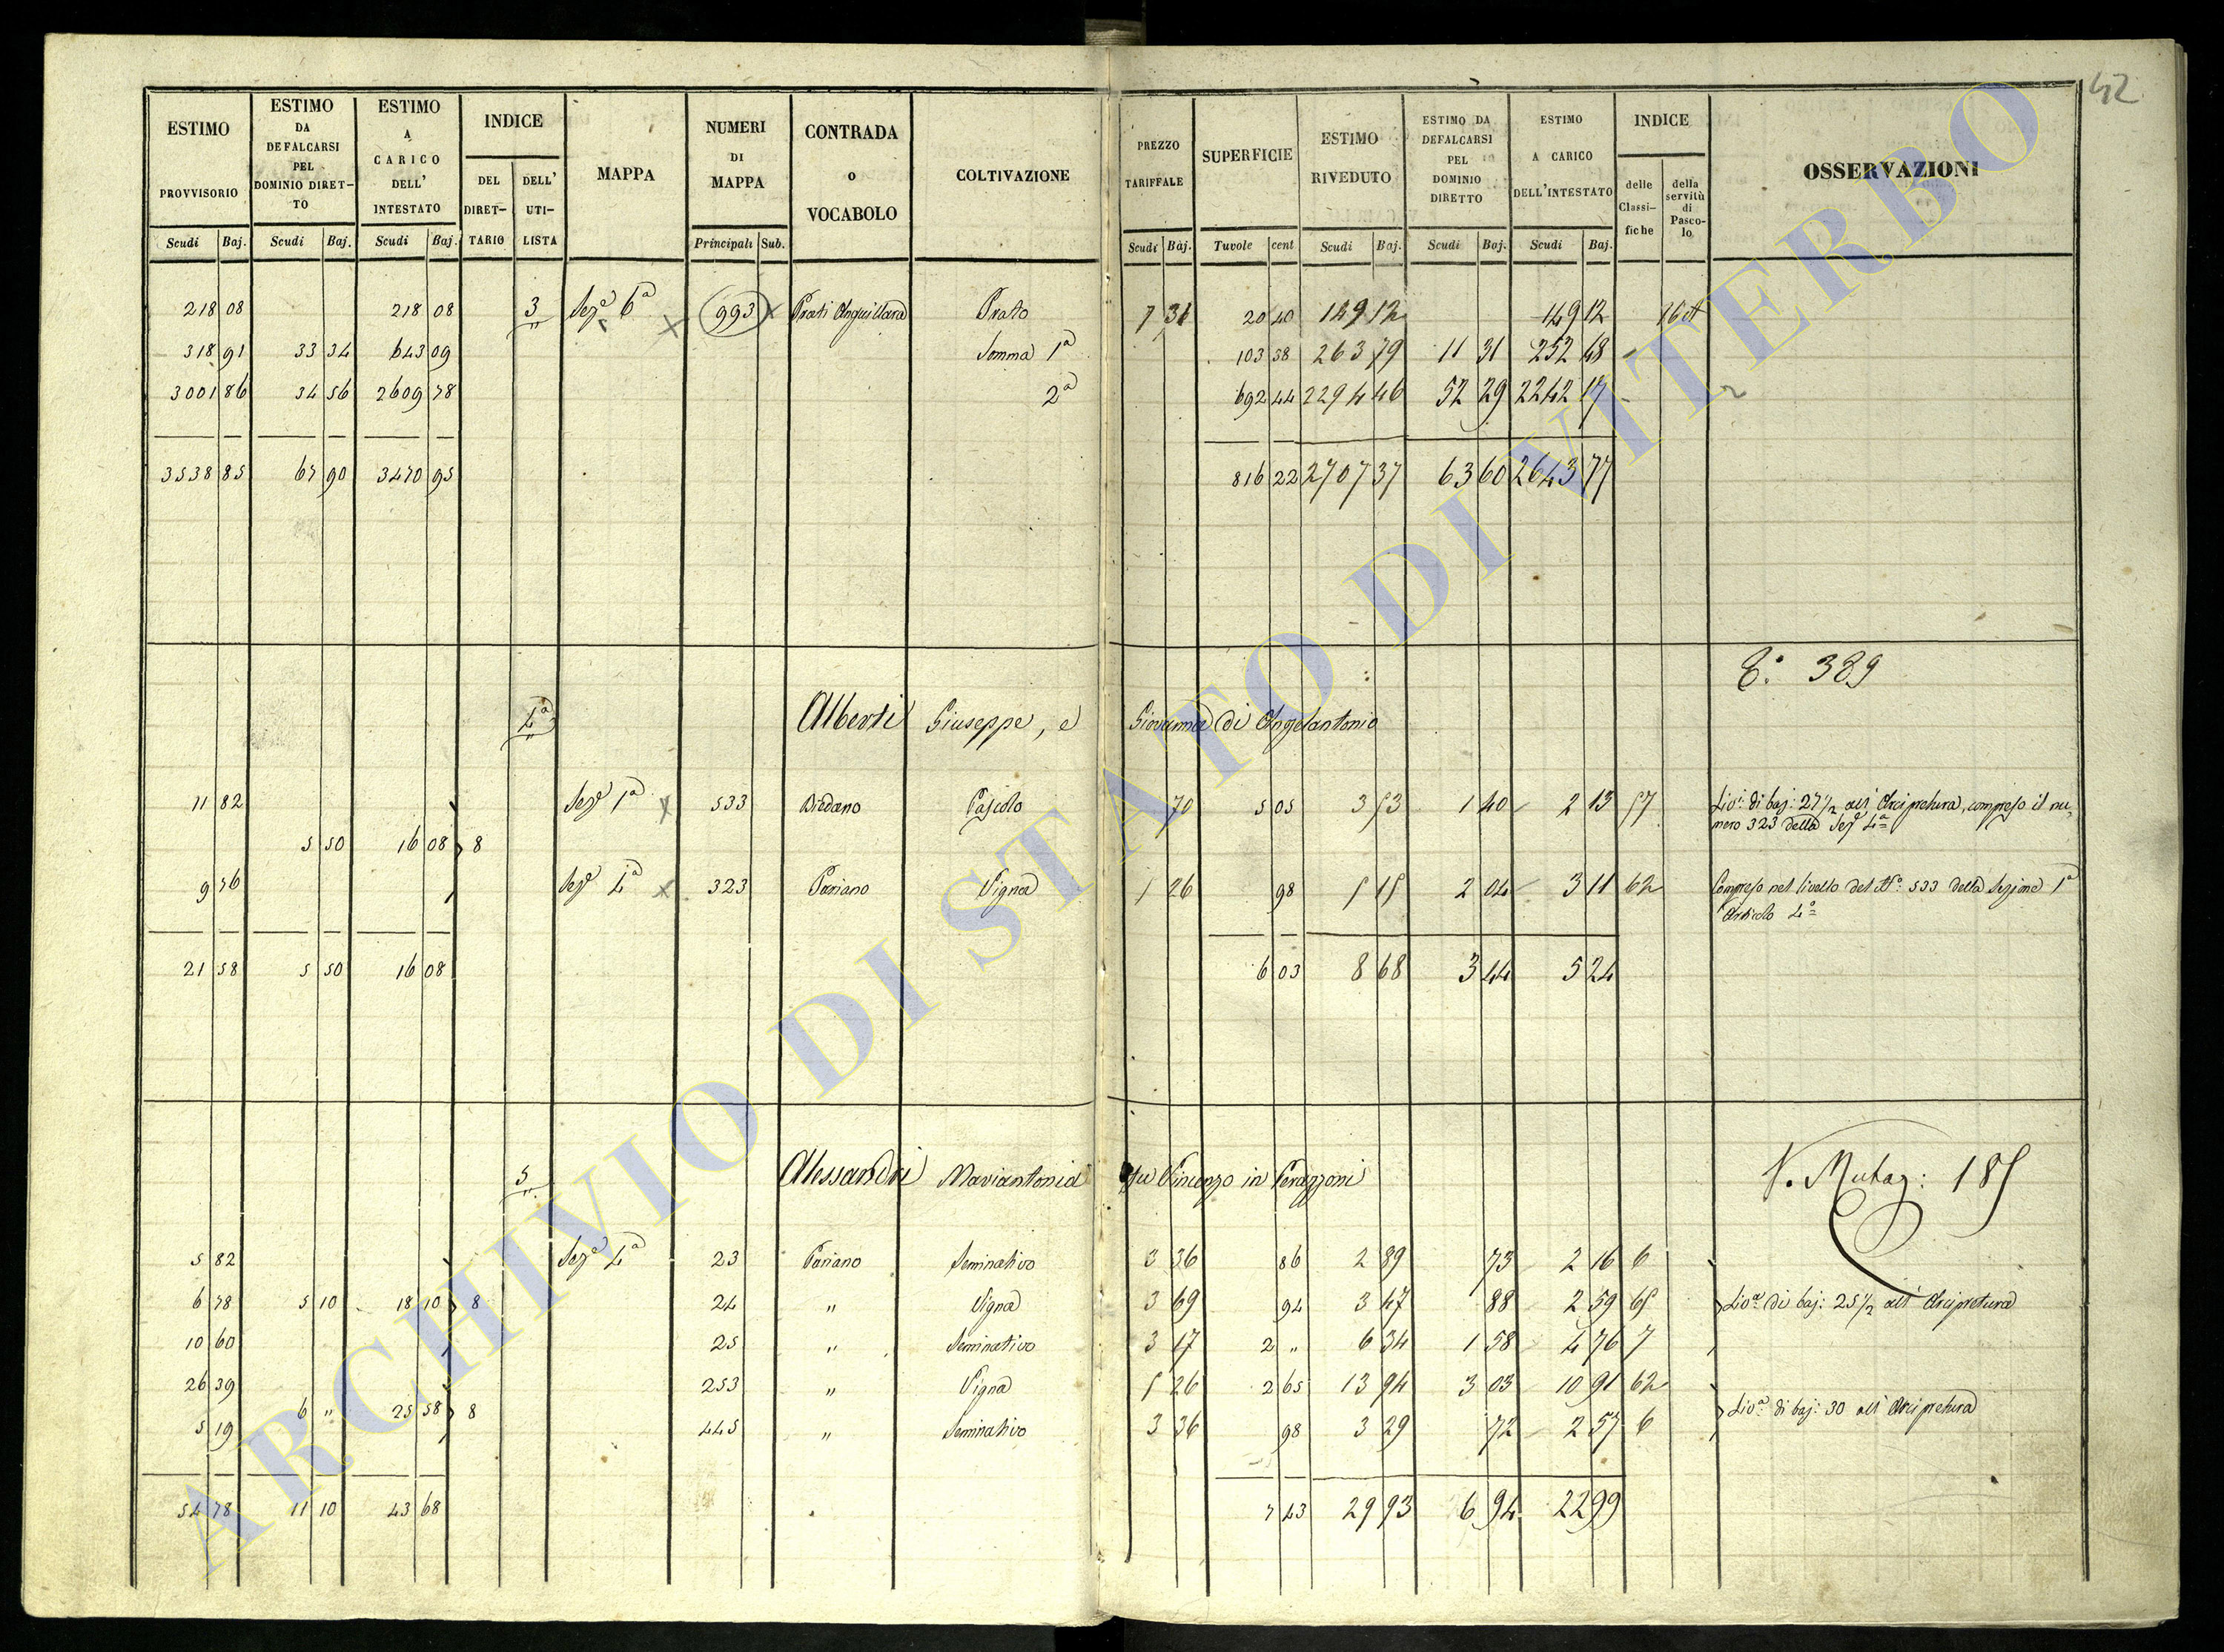 42
ESTIMO PROVVISORIO Scudi Baj.
ESTIMO DA DEFALCARSI PEL DOMINIO DIRETTO Scudi Baj.
ESTIMO A CARICO DELL' INTESTATO Scudi Baj.
INDICE DEL DIRETTARIO DELL' UTILISTA
MAPPA
NUMERI DI MAPPA Principali Sub.
CONTRADA o VOCABOLO
COLTIVAZIONE
PREZZO TARIFFALE Scudi Baj.
SUPERFICIE Tavole cent
ESTIMO RIVEDUTO Scudi Baj.
ESTIMO DA DEFALCARSI PEL DOMINIO DIRETTO Scudi Baj.
ESTIMO A CARICO DELL'INTESTATO Scudi Baj.
INDICE delle Classifiche della servitù di Pascolo
OSSERVAZIONI
218 08 218 08 3 Sezᵉ 6ª 993 Prati Anguillara Prato 7 31 20 40 149 12 149 12 16 A
318 91 33 34 643 09 Somma 1ª 103 38 263 79 11 31 252 48
3001 86 34 56 2609 78 2ª 692 44 2294 46 52 29 2242 17
3538 85 67 90 3470 95 816 22 2707 37 63 60 2643 77
389
4ª Alberti Giuseppe, e Giovanna di Angelantonio
11 82 Sezᵉ 1ª 533 Biedano Pascolo 70 5 05 3 53 1 40 2 13 57 Livᵒ: di baj: 27½ all' Arcipretura, compreso il nu=
mero 323 della Sezᵉ 4ª
5 50 16 08 8
9 76 Sezᵉ 4ª 323 Pariano Vigna 5 26 98 5 15 2 04 3 11 62 Compreso nel livello del Nº: 533 della Sezione 1ª
Articolo 4º
21 58 5 50 16 08 6 03 8 68 3 44 5 24
5 Alessandri Mariantonia fu Vincenzo in Perazzoni
V. Mutaz: 185
5 82 Sezᵉ 4ª 23 Pariano Seminativo 3 36 86 2 89 73 2 16 6
6 78 5 10 18 10 8 24 " Vigna 3 69 94 3 47 88 2 59 65 Livᵒ di baj: 25½ all' Arcipretura
10 60 25 " Seminativo 3 17 2 " 6 34 1 58 4 76 7
26 39 253 " Vigna 5 26 2 65 13 94 3 03 10 91 62
6 " 25 58 8 Livᵒ di baj: 30 all' Arcipretura
5 19 445 " Seminativo 3 36 98 3 29 72 2 57 6
54 78 11 10 43 68 7 43 29 93 6 94 22 99
ARCHIVIO DI STATO DI VITERBO